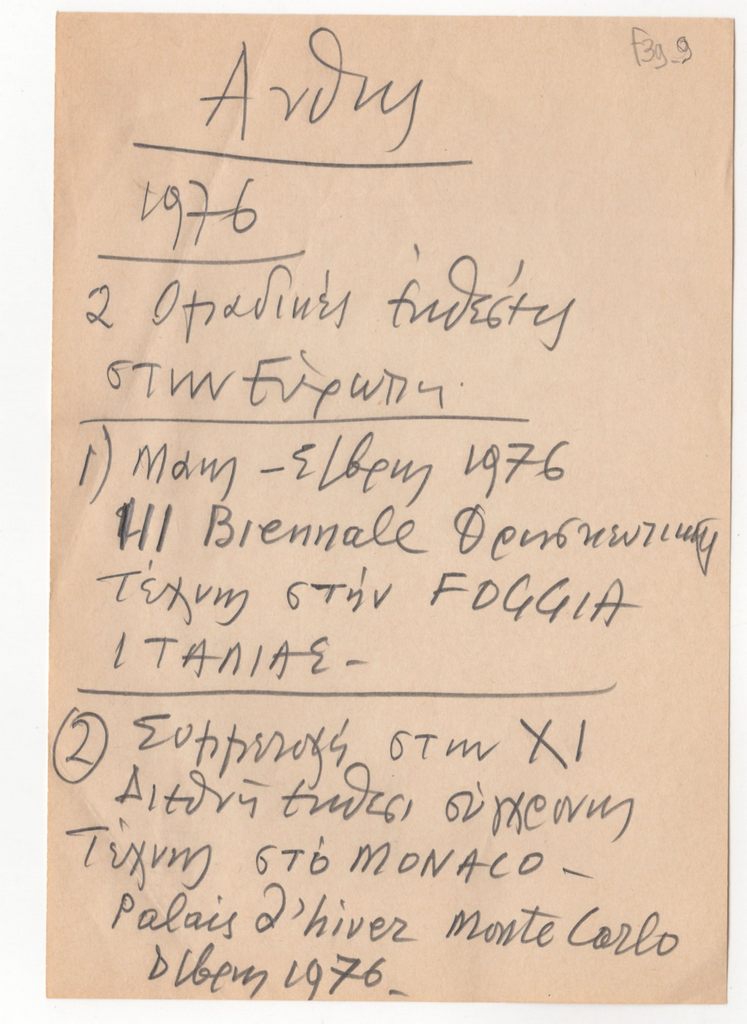 F39_9
Ανθης
1976
2 Ομαδικές ἐκθέσεις
στην Εὐρωπη.
1) Μαης - Σ/βρης 1976
III Biennale Θρησκευτικής
Τέχνης στήν FOGGIA
ΙΤΑΛΙΑΣ -
② Συμμετοχή στην XI
Διεθνή ἐκθεσι σύγχρονης
Τέχνης στό MONACO -
Palais d'hiver Monte Carlo
1976 -